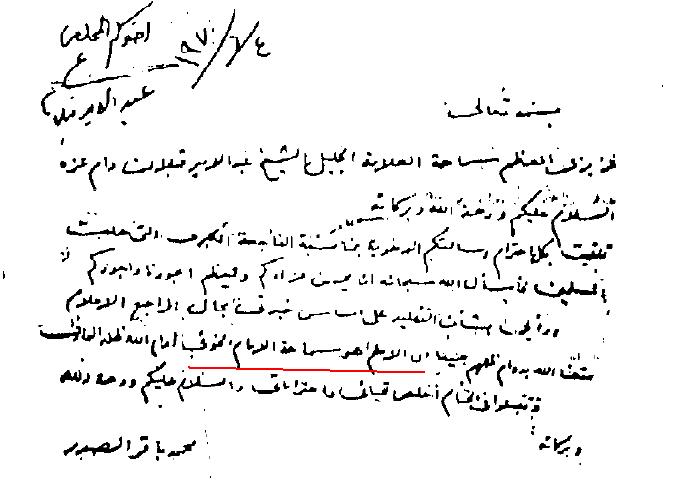 اخوكم المخلص
ع
عبد الامير قبلان
٤/٧/١٩٧٠
بسمه تعالى
عزيزي المعظم سماحة العلامة الجليل الشيخ عبد الامير قبلان دام عزه
السلام عليكم ورحمة الله وبركاته
تلقيت بكل احترام رسالتكم بمناسبة الفاجعة الكبرى التي
بالمسلمين أسأل الله سبحانه ان يحسن عزاءكم ويعظم اجورنا واجوركم
ورأيي في شأن التقليد على اساس خبرتي بحال المراجع الاعلام
متعنا الله بدوام ظلهم جميعا ان الاعلم هو سماحة الامام الخوئي ادام الله ظله
وتقبلوا في الختام أخلص تحياتي واحتراماتي والسلام عليكم ورحمة الله
وبركاته
محمد باقر الصدر